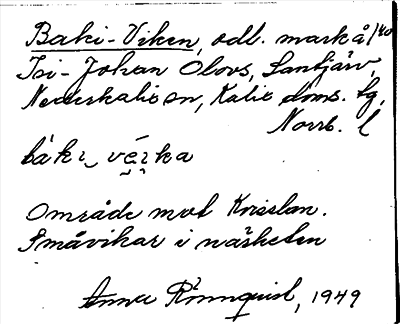 Baki-Viken, odl. mark å 1/40
Isi-Johan Olovs, Lantjärv,
Nederkalix sn, Kalix doms. tg,
Norrb. l
bàki vei̯ka
Område mot Kosslan.
Småvikar i närheten
Anna Rönnquist, 1949